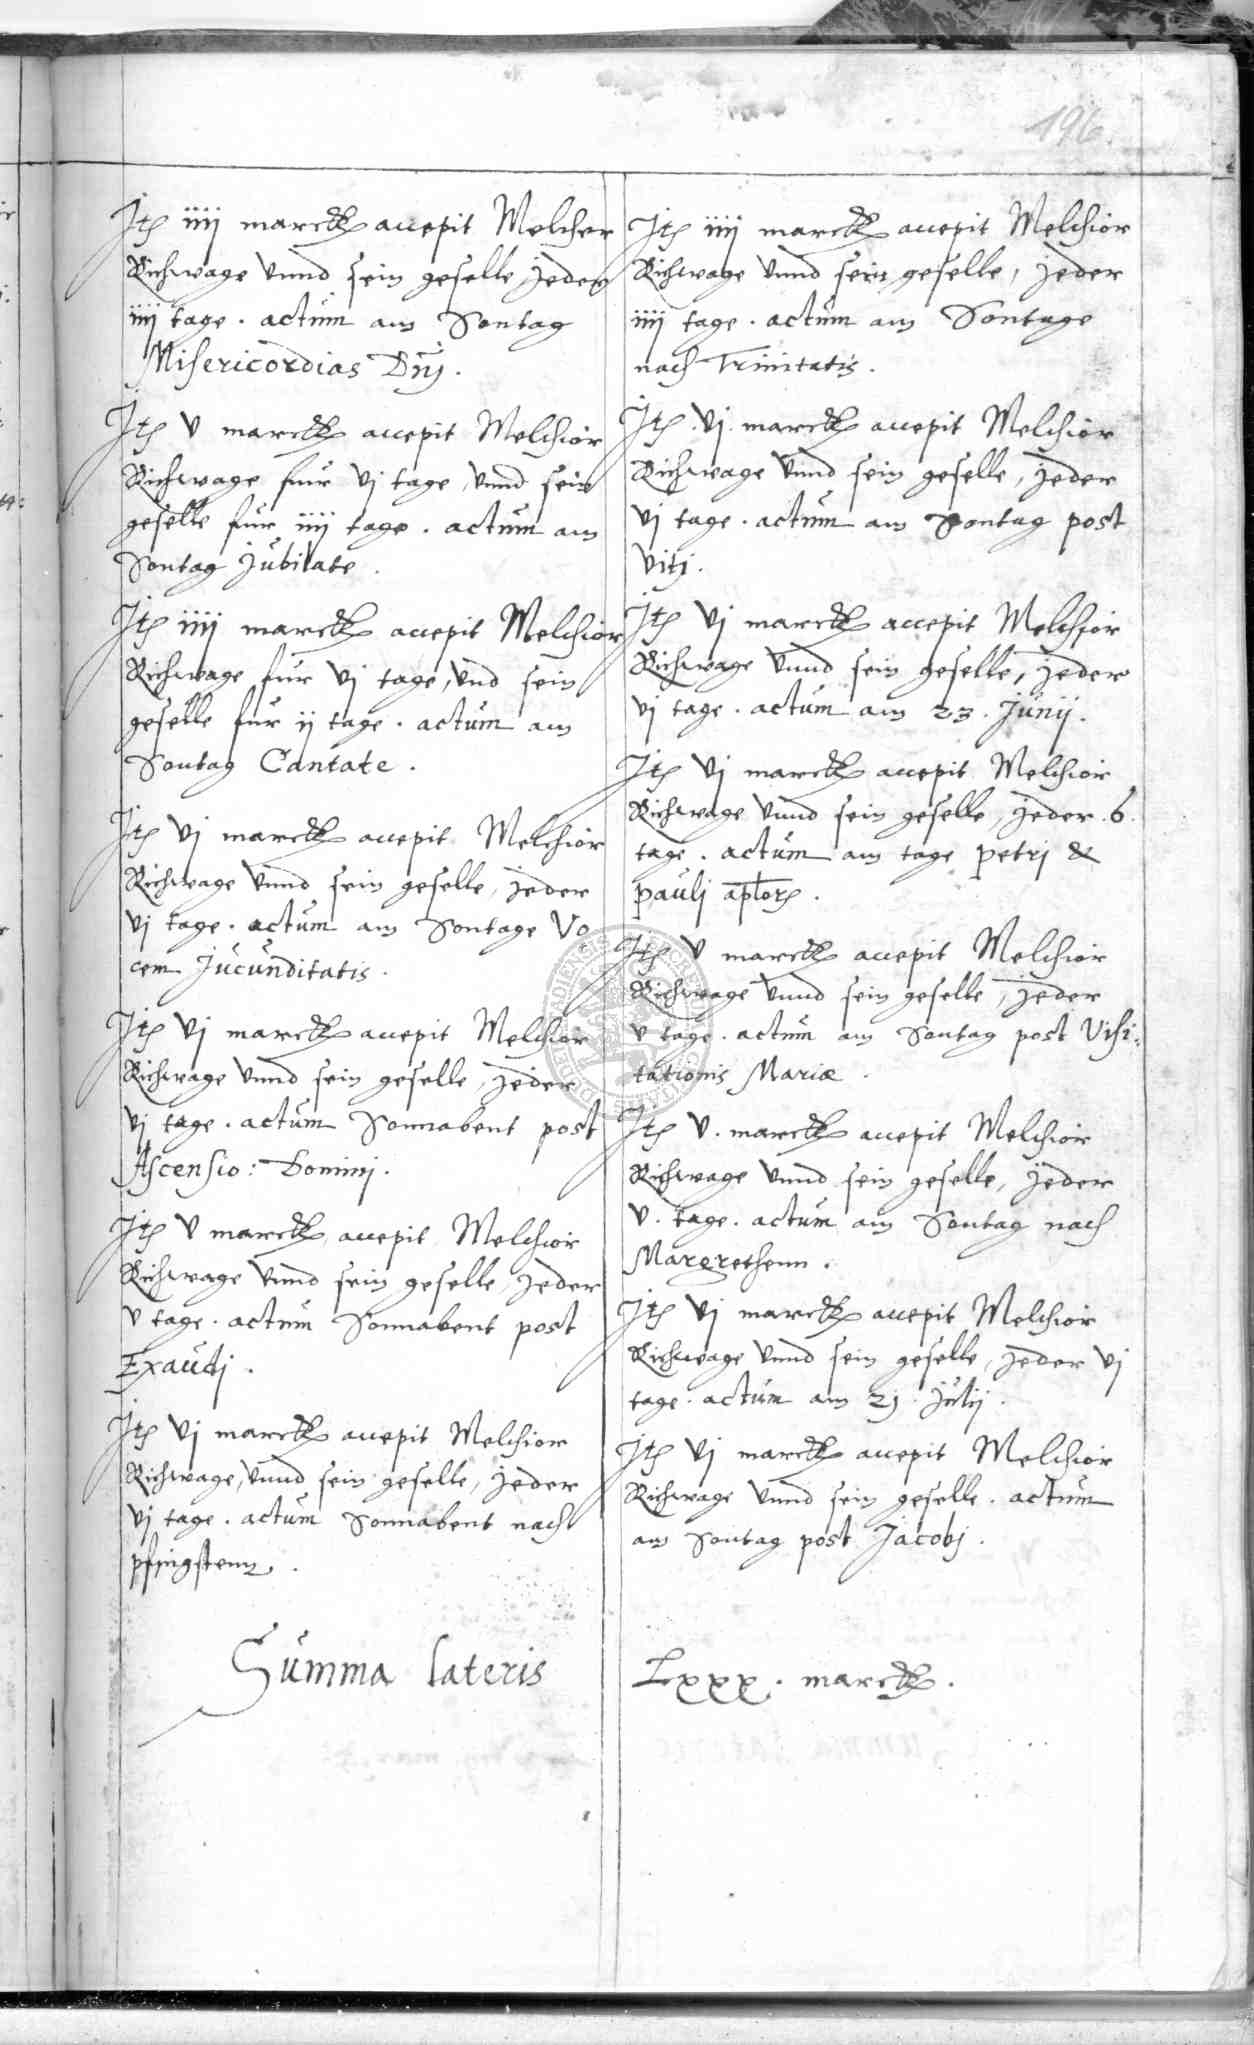 196
Jtē iiij marckē accepit Melcher
Richwage vnnd sein geselle, jeder
iiij tage. actum am Sontag
Misericordias Dnj.
Jtē v marckē accepit Melchior
Richwage fur vj tage, vnnd sein
geselle fur iiij tage. actum am
Sontag Jubilate.
Jtē iiij marckē accepit Melchior
Richwage fur vj tage, vnd sein
geselle fur ij tage. actum am
Sontag Cantate.
Jtē vj marckē accepit Melchior
Richwage vnnd sein geselle, jeder
vj tage. actum am Sontage Vo
cem Jucunditatis.
Jtē vj marckē accepit Melchior
Richwage vnnd sein geselle, jeder
vj tage. actum Sonnabent post
Ascensio: Dominj.
Jtē v marckē accepit Melchior
Richwage vnnd sein geselle, jeder
v tage. actum Sonnabent post
Exaudj.
Jtē vj marckē accepit Melchior
Richwage, vnnd sein geselle, jeder
vj tage. actum Sonnabent nach
pfingstenn.
Summa lateris
Jtē iiij marckē accepit Melchior
Richwage vnnd sein geselle, jeder
iiij tage. actum am Sontage
nach Trinitatis.
Jtē. vj. marckē accepit Melchior
Richwage vnnd sein geselle, jeder
vj tage. actum am Sontag post
Vitj.
Jtē vj marckē accepit Melchior
Richwage vnnd sein geselle, jeder
vj tage. actum am 23. Junij.
Jtē vj marckē accepit Melchior
Richwage vnnd sein geselle, jeder. 6.
tage. actum am tage petrj &
paulj aplorꝫ.
Jtē v marckē accepit Melchior
Richwage vnnd sein geselle, jeder
v tage. actum am Sontag post Visi:
tationis Mariæ.
Jtē v. marckē accepit Melchior
Richwage vnnd sein geselle, jeder
v. tage. actum am Sontag nach
Margrethenn.
Jtē vj marckē accepit Melchior
Richwage vnnd sein geselle, jeder vj
tage. actum am 21. Julij.
Jtē vj marckē accepit Melchior
Richwage vnnd sein geselle. actum
am Sontag post Jacobj.
Lxxx. marckē.